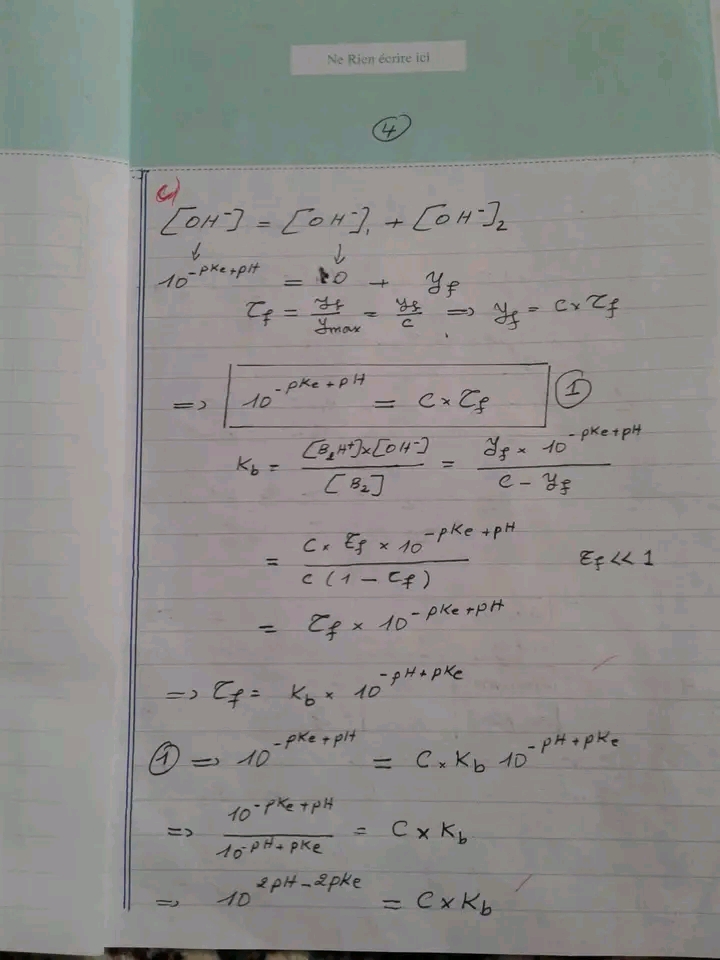 Ne Rien écrire ici
4
c)
[OH⁻] = [OH⁻]₁ + [OH⁻]₂
↓ ↓
10^(-pKe+pH) = 0 + y_f
τ_f = y_f / y_max = y_f / c ⟹ y_f = C × τ_f
⟹ 10^(-pKe+pH) = C × τ_f ①
K_b = [B₂H⁺]×[OH⁻] / [B₂] = y_f × 10^(-pKe+pH) / (C - y_f)
= C × τ_f × 10^(-pKe+pH) / C(1 - τ_f) τ_f << 1
= τ_f × 10^(-pKe+pH)
⟹ τ_f = K_b × 10^(-pH+pKe)
① ⟹ 10^(-pKe+pH) = C × K_b 10^(-pH+pKe)
⟹ 10^(-pKe+pH) / 10^(-pH+pKe) = C × K_b
⟹ 10^(2pH-2pKe) = C × K_b